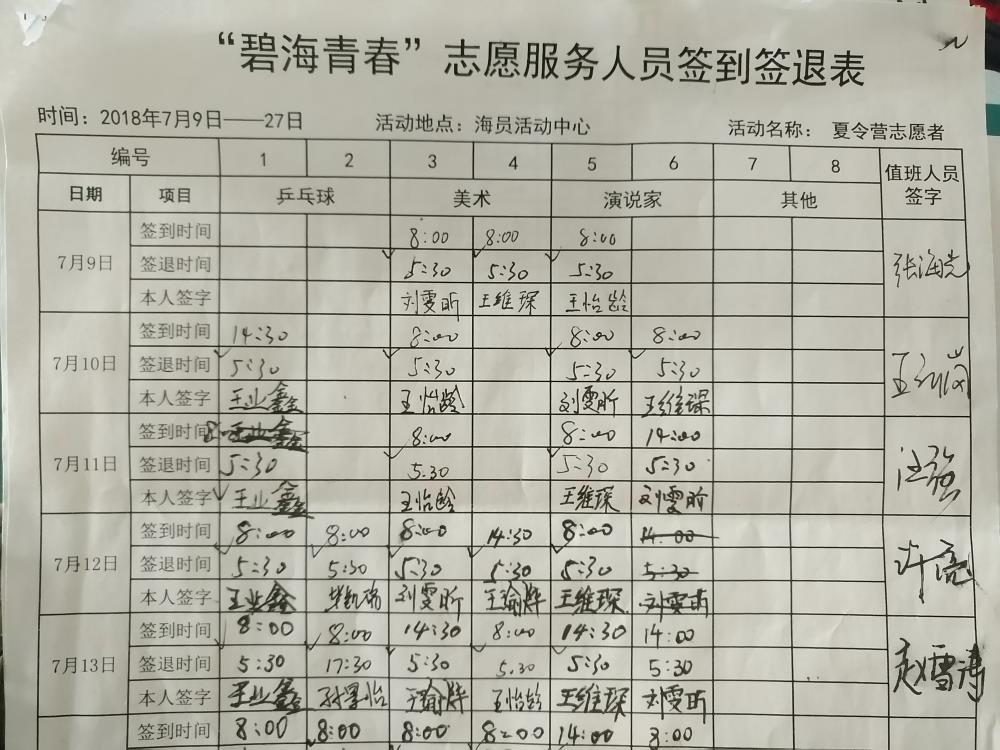 “碧海青春”志愿服务人员签到签退表
时间：2018年7月9日——27日 活动地点：海员活动中心 活动名称： 夏令营志愿者
编号 1 2 3 4 5 6 7 8 值班人员签字
日期 项目 乒乓球 美术 演说家 其他
签到时间 8:00 8:00 8:00
7月9日 签退时间 5:30 5:30 5:30
本人签字 刘雯昕 王维琛 王怡龄
签到时间 14:30 8:00 8:00 8:00
7月10日 签退时间 5:30 5:30 5:30 5:30
本人签字 王业鑫 王怡龄 刘雯昕 王维琛
签到时间 8:00 8:00 14:00
7月11日 签退时间 5:30 5.30 5:30 5:30 汪强
本人签字 王业鑫 王怡龄 王维琛 刘雯昕
签到时间 8:00 8:00 8:00 14:30 8:00 14:00
7月12日 签退时间 5:30 5:30 5:30 5:30 5:30 5:30 许亮
本人签字 王业鑫 刘雯昕 王瑜烨 王维琛 刘雯昕
签到时间 8:00 8:00 14:30 8:00 14:30 14:00
7月13日 签退时间 5:30 17:30 5:30 5.30 5:30 5:30 赵雪涛
本人签字 王业鑫 王瑜烨 王怡龄 王维琛 刘雯昕
签到时间 8:00 8:00 8:00 8:00 14:00 8:00